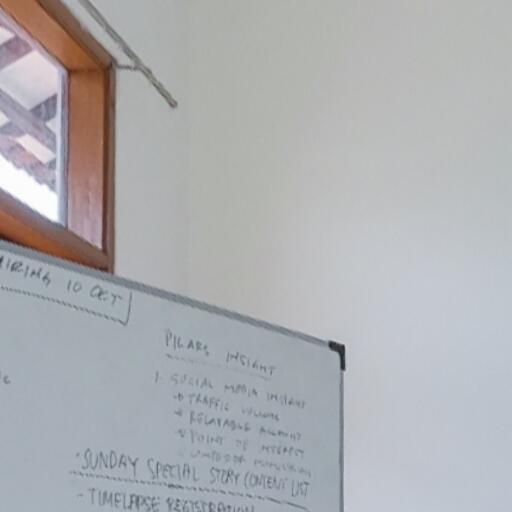 10 OCT
PILARS INSIGHT
1. SOCIAL MEDIA INSIGHT
→ TRAFFIC VOLUME
→ RELATABLE ACCOUNT
→ POINT OF INTEREST
- SUNDAY SPECIAL STORY CONTENT LIST
- TIMELAPSE REGISTRATION